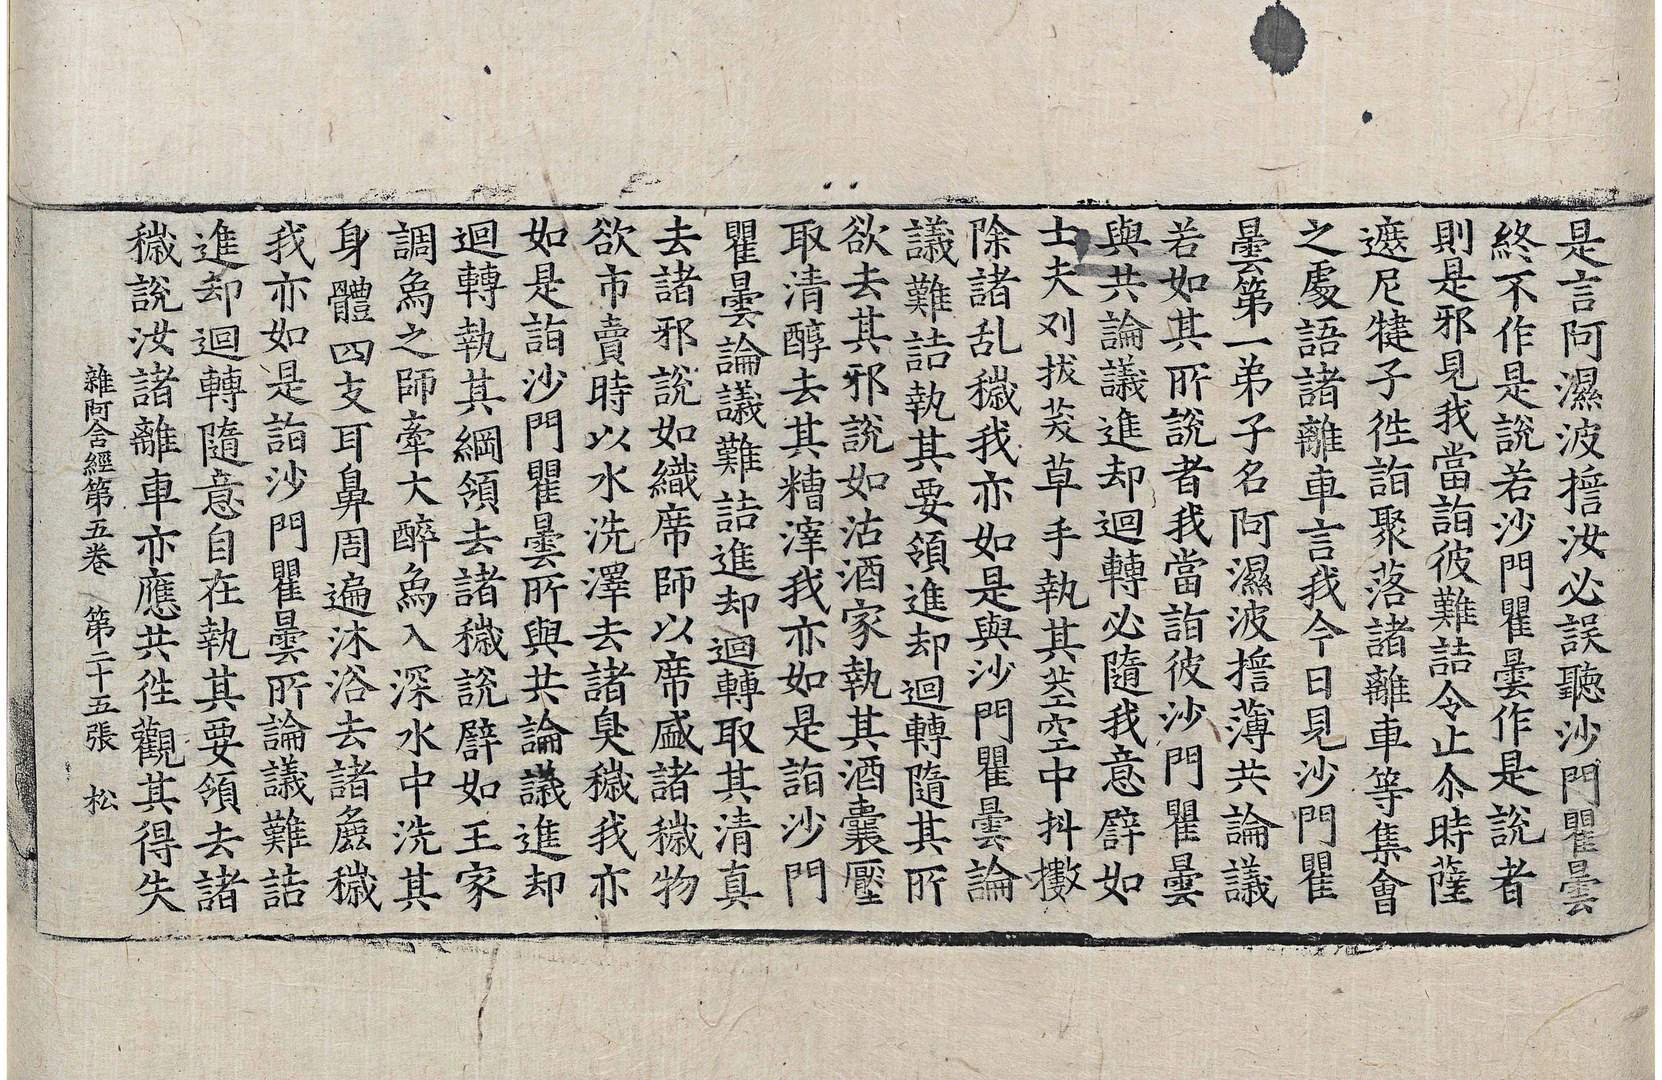 是言阿濕波擔汝必誤聽沙門瞿曇
終不作是說若沙門瞿曇作是說者
則是邪見我當詣彼難詰令止尒時薩
遮尼犍子徃詣聚落諸離車等集會
之處語諸離車言我今日見沙門瞿
曇第一弟子名阿濕波擔薄共論議
若如其所說者我當詣彼沙門瞿曇
與共論議進却迴轉必隨我意譬如
士夫刈拔茇草手執其莖空中抖擻
除諸乱穢我亦如是與沙門瞿曇論
議難詰執其要領進却迴轉隨其所
欲去其邪說如沽酒家執其酒囊壓
取清醇去其糟滓我亦如是詣沙門
瞿曇論議難詰進却迴轉取其清真
去諸邪說如織席師以席盛諸穢物
欲市賣時以水洗澤去諸臭穢我亦
如是詣沙門瞿曇所與共論議進却
迴轉執其綱領去諸穢說譬如王家
調象之師牽大醉象入深水中洗其
身體四支耳鼻周遍沐浴去諸麁穢
我亦如是詣沙門瞿曇所論議難詰
進却迴轉隨意自在執其要領去諸
穢說汝諸離車亦應共徃觀其得失
雜阿含經第五卷 第二十五張 松